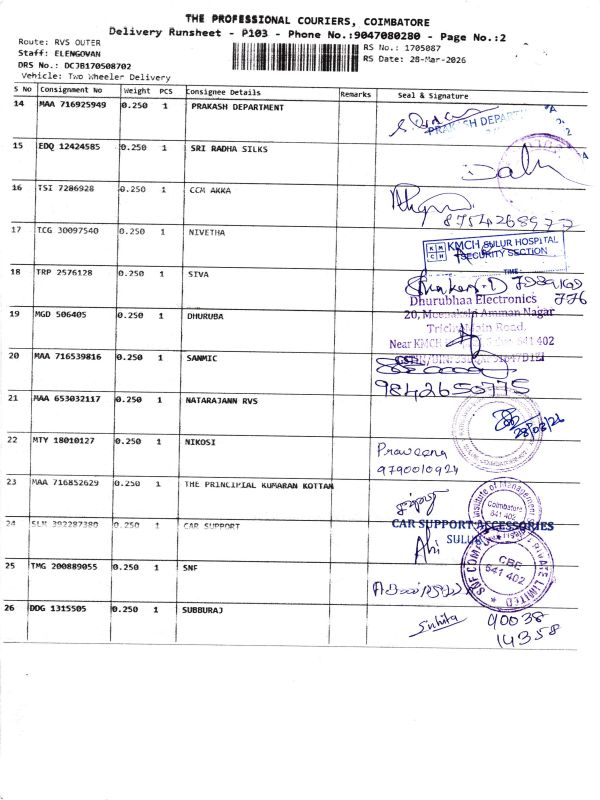 THE PROFESSIONAL COURIERS, COIMBATORE
Delivery Runsheet - P103 - Phone No.:9047080280 - Page No.:2
Route: RVS OUTER
RS No.: 1705087
Staff: ELENGOVAN
RS Date: 28-Mar-2026
DRS No.: DCJB170508702
Vehicle: Two Wheeler Delivery
S No Consignment No Weight PCS Consignee Details Remarks Seal & Signature
14 MAA 716925949 0.250 1 PRAKASH DEPARTMENT
PRAKASH DEPART
15 EDQ 12424585 0.250 1 SRI RADHA SILKS
16 TSI 7286928 0.250 1 CCM AKKA
8754268977
17 TCG 30097540 0.250 1 NIVETHA
KMCH SULUR HOSPITAL
SECURITY SECTION
TIME:
18 TRP 2576128 0.250 1 SIVA
Dhurubhaa Electronics
19 MGD 506405 0.250 1 DHURUBA
20, Meenakshi Amman Nagar
Trichy Main Road,
Near KMCH Sulur 641 402
20 MAA 716539816 0.250 1 SANMIC
9842650775
21 MAA 653032117 0.250 1 NATARAJANN RVS
28/03/26
22 MTY 18010127 0.250 1 NIKOSI
Praveena
9790010924
23 MAA 716852629 0.250 1 THE PRINCIPIAL KUMARAN KOTTAN
Institute of Management
Coimbatore
641 402
24 SLM 392287380 0.250 1 CAR SUPPORT
CAR SUPPORT ACCESSORIES
SULUR
25 TMG 200889055 0.250 1 SNF
PRIVATE LIMITED
CBE
641 402
26 DDG 1315505 0.250 1 SUBBURAJ
Suhita 90038
14358